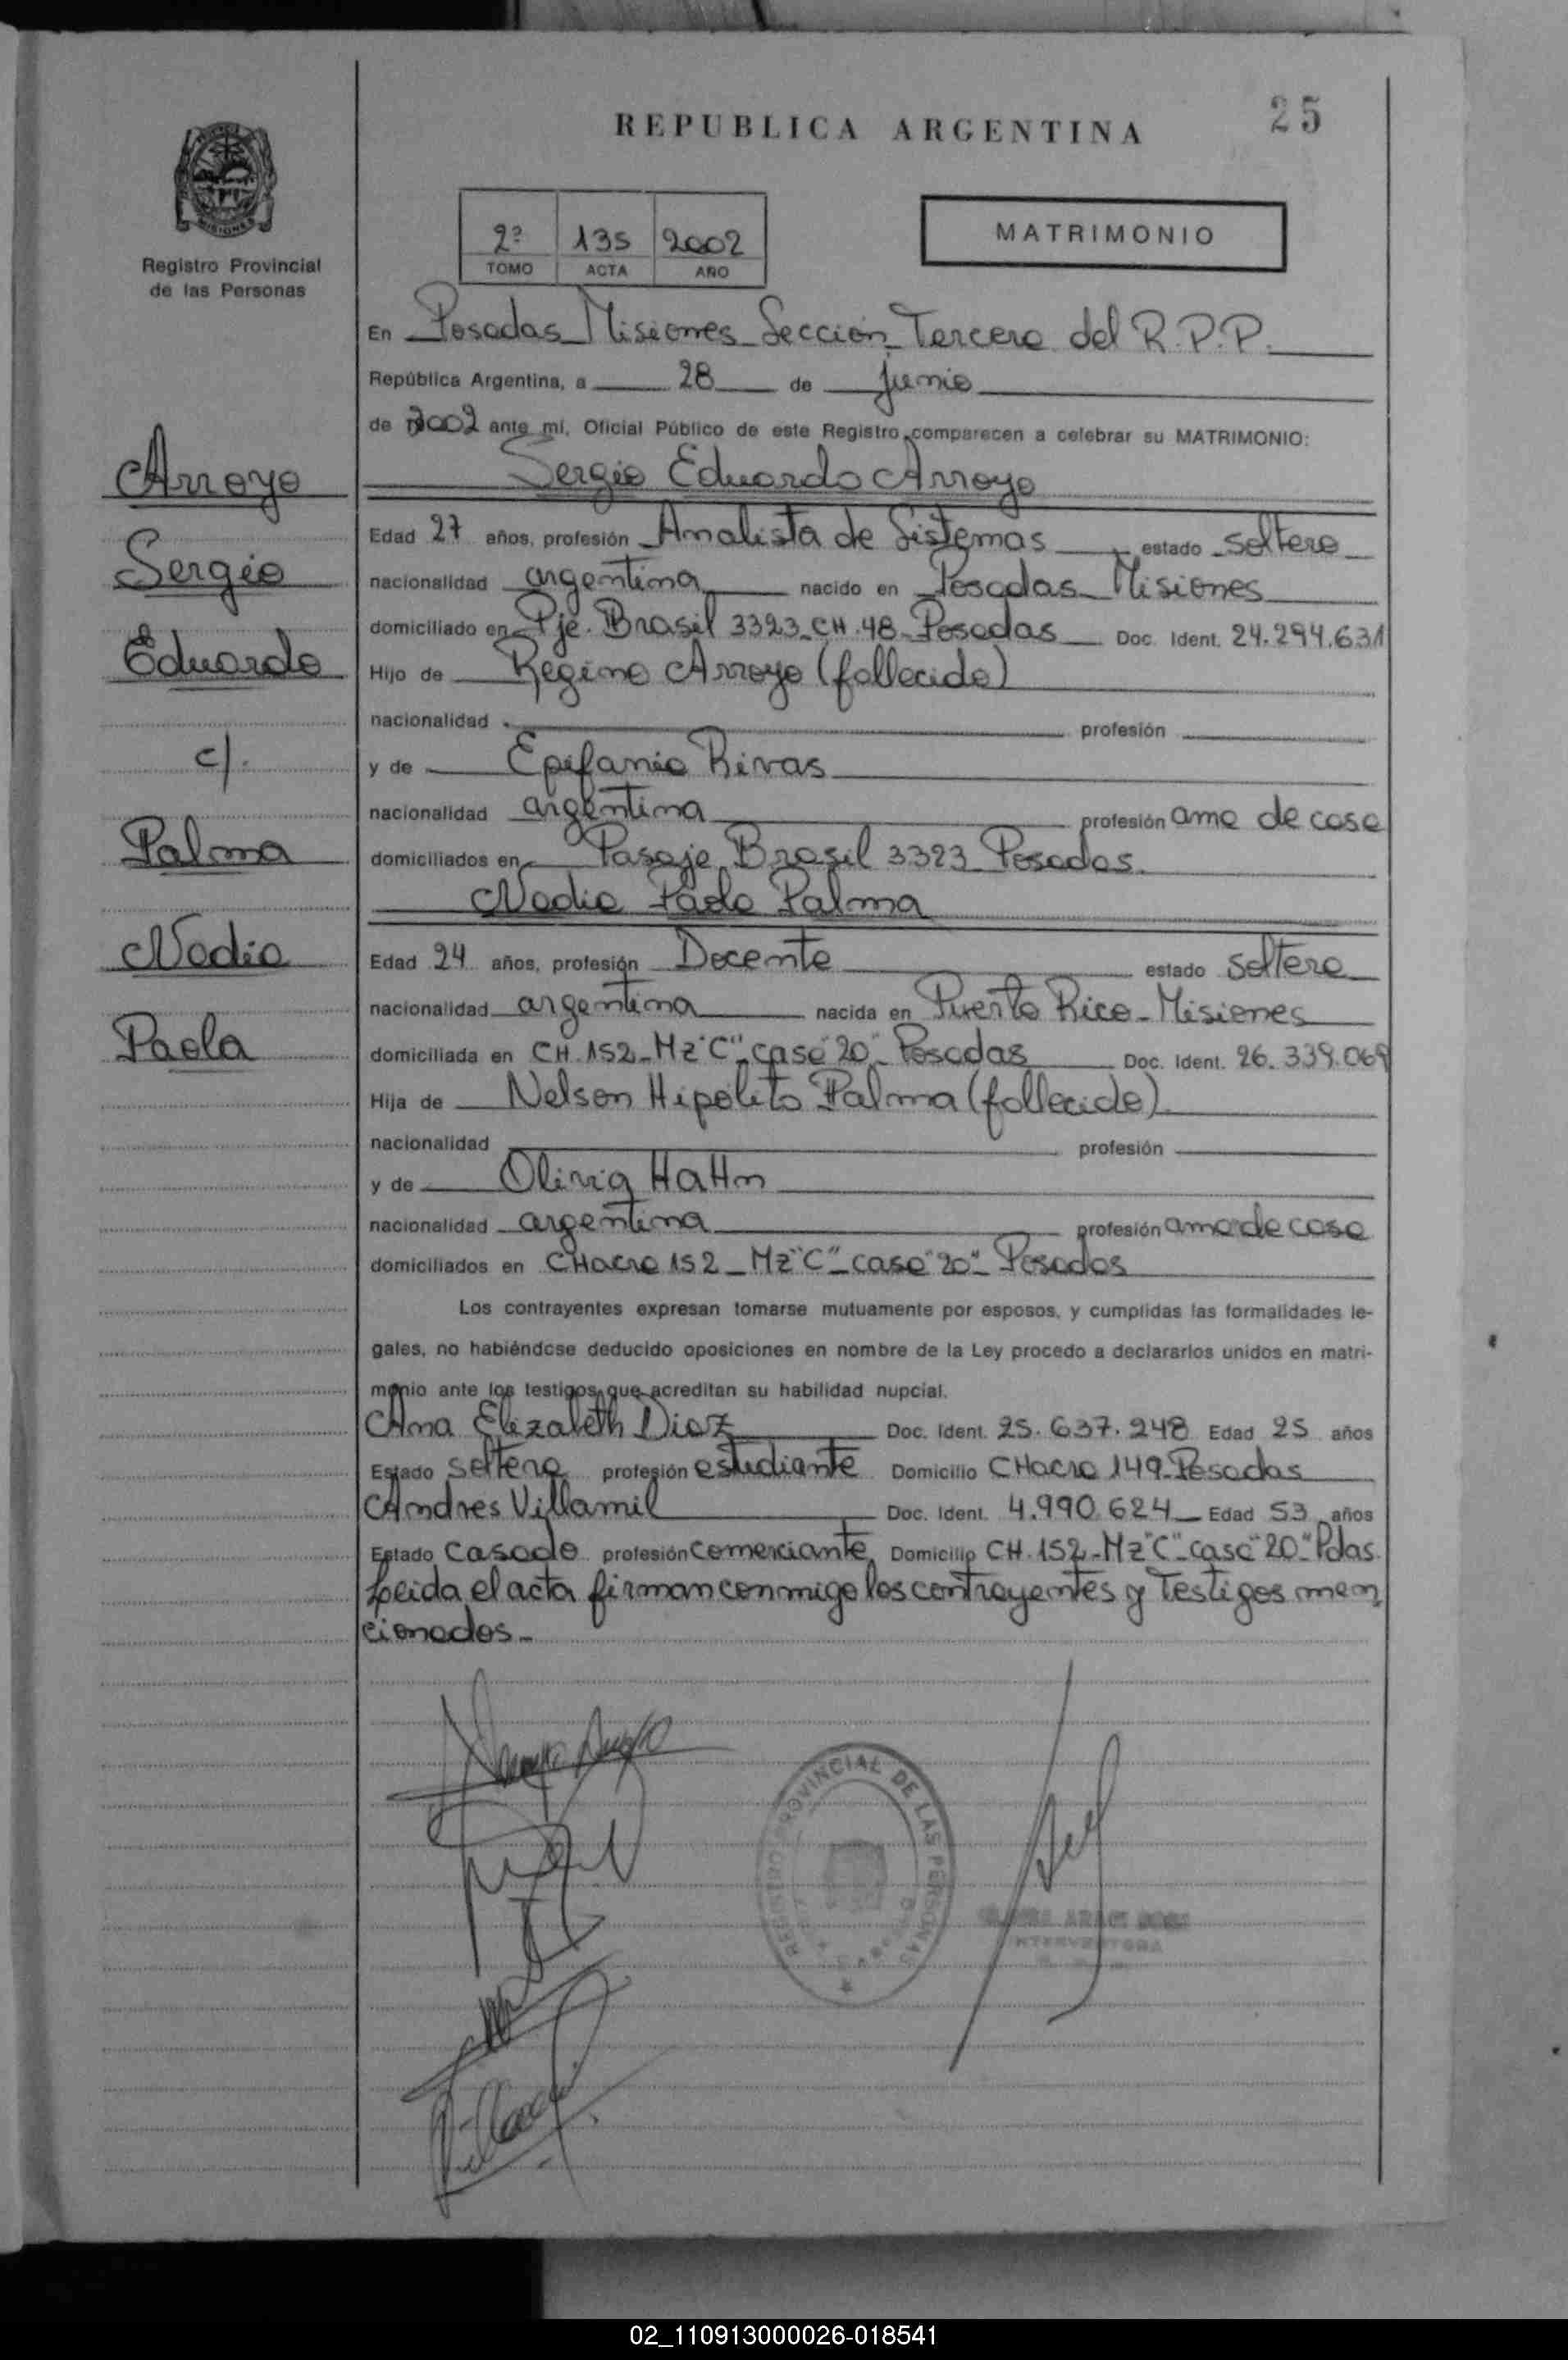 REPUBLICA ARGENTINA
25
MISIONES
Registro Provincial
de las Personas
2º 135 2002
TOMO ACTA AÑO
MATRIMONIO
En Posadas Misiones Sección Tercera del R.P.P.
República Argentina, a 28 de junio
de 2002 ante mí, Oficial Público de este Registro, comparecen a celebrar su MATRIMONIO:
Sergio Eduardo Arroyo
Edad 27 años, profesión Analista de Sistemas, estado soltero
nacionalidad argentina nacido en Posadas Misiones
domiciliado en Pje. Brasil 3323 CH.48 Posadas Doc. Ident. 24.294.631
Hijo de Regino Arroyo (fallecido)
nacionalidad profesión
y de Epifania Rivas
nacionalidad argentina profesión ama de casa
domiciliados en Pasaje Brasil 3323 Posadas.
Nadia Paola Palma
Edad 24 años, profesión Docente estado soltera
nacionalidad argentina nacida en Puerto Rico - Misiones
domiciliada en CH.152-Mz"C"-casa"20"-Posadas Doc. Ident. 26.339.069
Hija de Nelson Hipólito Palma (fallecido).
nacionalidad profesión
y de Olivia HaHn
nacionalidad argentina profesión ama de casa
domiciliados en CHacra 152-Mz"C"-casa"20"-Posadas
Los contrayentes expresan tomarse mutuamente por esposos, y cumplidas las formalidades le-
gales, no habiéndose deducido oposiciones en nombre de la Ley procedo a declararlos unidos en matri-
monio ante los testigos que acreditan su habilidad nupcial.
Ana Elizabeth Diaz Doc. Ident. 25.637.248 Edad 25 años
Estado soltera profesión estudiante Domicilio CHacra 149-Posadas
Andres Villamil Doc. Ident. 4.990.624 Edad 53 años
Estado casado profesión comerciante Domicilio CH.152-Mz"C"-casa"20"-Pdas.
Leida el acta firman conmigo los contrayentes y Testigos men
cionados.-
Arroyo
Sergio
Eduardo
c/.
Palma
Nadia
Paola
REGISTRO PROVINCIAL DE LAS PERSONAS
INTERVENTORA
02_110913000026-018541